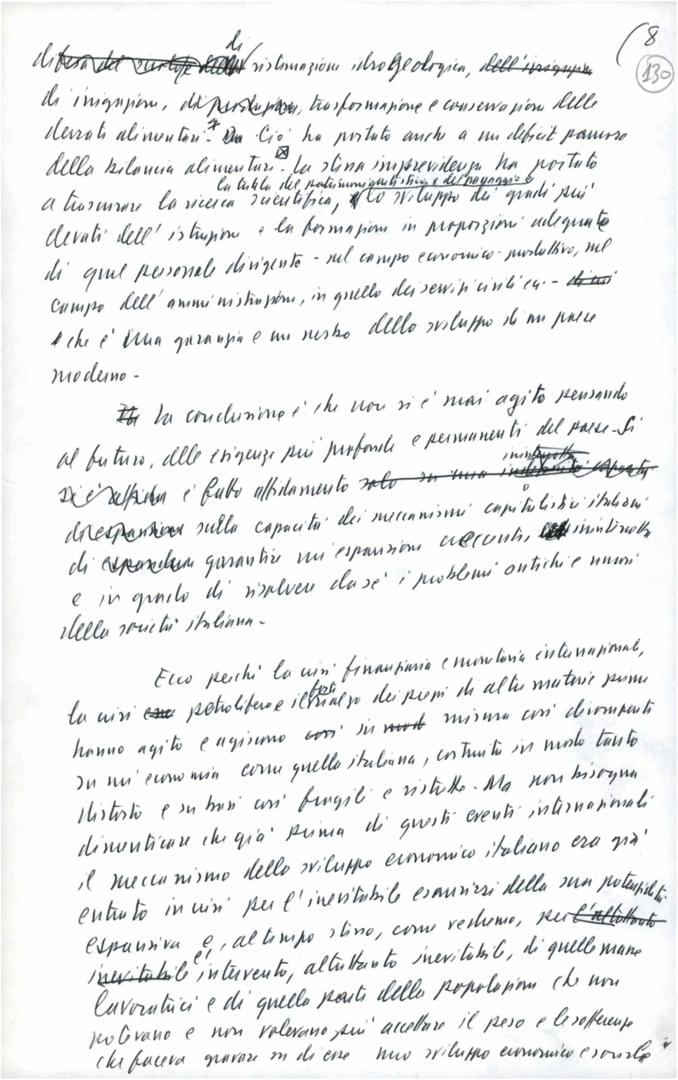 8
130
di sistemazione idrogeologica, dell'irrigazione
di irrigazione, di produzione, trasformazione e conservazione delle
derrate alimentari. Ciò ha portato anche a un deficit pauroso
della bilancia alimentare. La stessa imprevidenza ha portato
la tutela del patrimonio artistico e del paesaggio e
a trascurare la ricerca scientifica, lo sviluppo dei gradi più
elevati dell'istruzione e la formazione in proporzioni adeguate
di quel personale dirigente - nel campo economico-produttivo, nel
campo dell'amministrazione, in quello dei servizi civili ecc. -
che è una garanzia e un nerbo dello sviluppo di un paese
moderno -
La conclusione è che non si è mai agito pensando
al futuro, alle esigenze più profonde e permanenti del paese - Si
ininterrotta
si è affidata è fatto affidamento solo su una
di espansione sulla capacità dei meccanismi capitalistici italiani
di espandere garantire un'espansione crescente, ininterrotta
e in grado di risolvere da sé i problemi antichi e nuovi
della società italiana -
Ecco perché la crisi finanziaria e monetaria internazionale,
forte
la crisi petrolifera e il rialzo dei prezzi di altre materie prime
hanno agito e agiscono così in mod misura così dirompente
su un'economia come quella italiana, costruita in modo tanto
distorto e su basi così fragili e ristrette. Ma non bisogna
dimenticare che già prima di questi eventi internazionali
il meccanismo dello sviluppo economico italiano era già
entrato in crisi per l'inevitabile esaurirsi della sua potenzialità
espansiva e, al tempo stesso, come vedremo, per l'altrettanto
inevitabile intervento, altrettanto inevitabile, di quelle masse
lavoratrici e di quella parte della popolazione che non
potevano e non volevano più accettare il peso e le sofferenze
che faceva gravare su di esse uno sviluppo economico e sociale